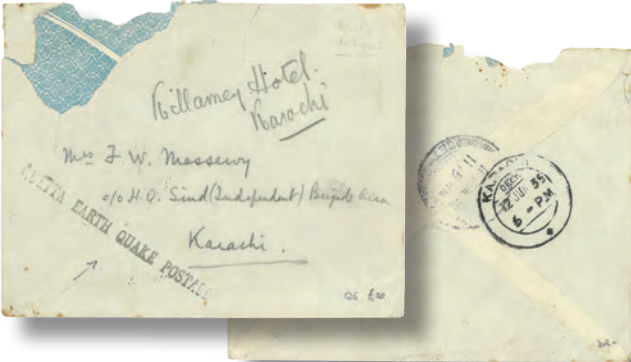 Killarney Hotel.
Karachi
Mrs F. W. Messervy
c/o H.Q. Sind (Independent) Brigade Area
Karachi.
QUETTA EARTH QUAKE POSTAGE
KARACHI
DELY.
12 JUN 35
6 - PM